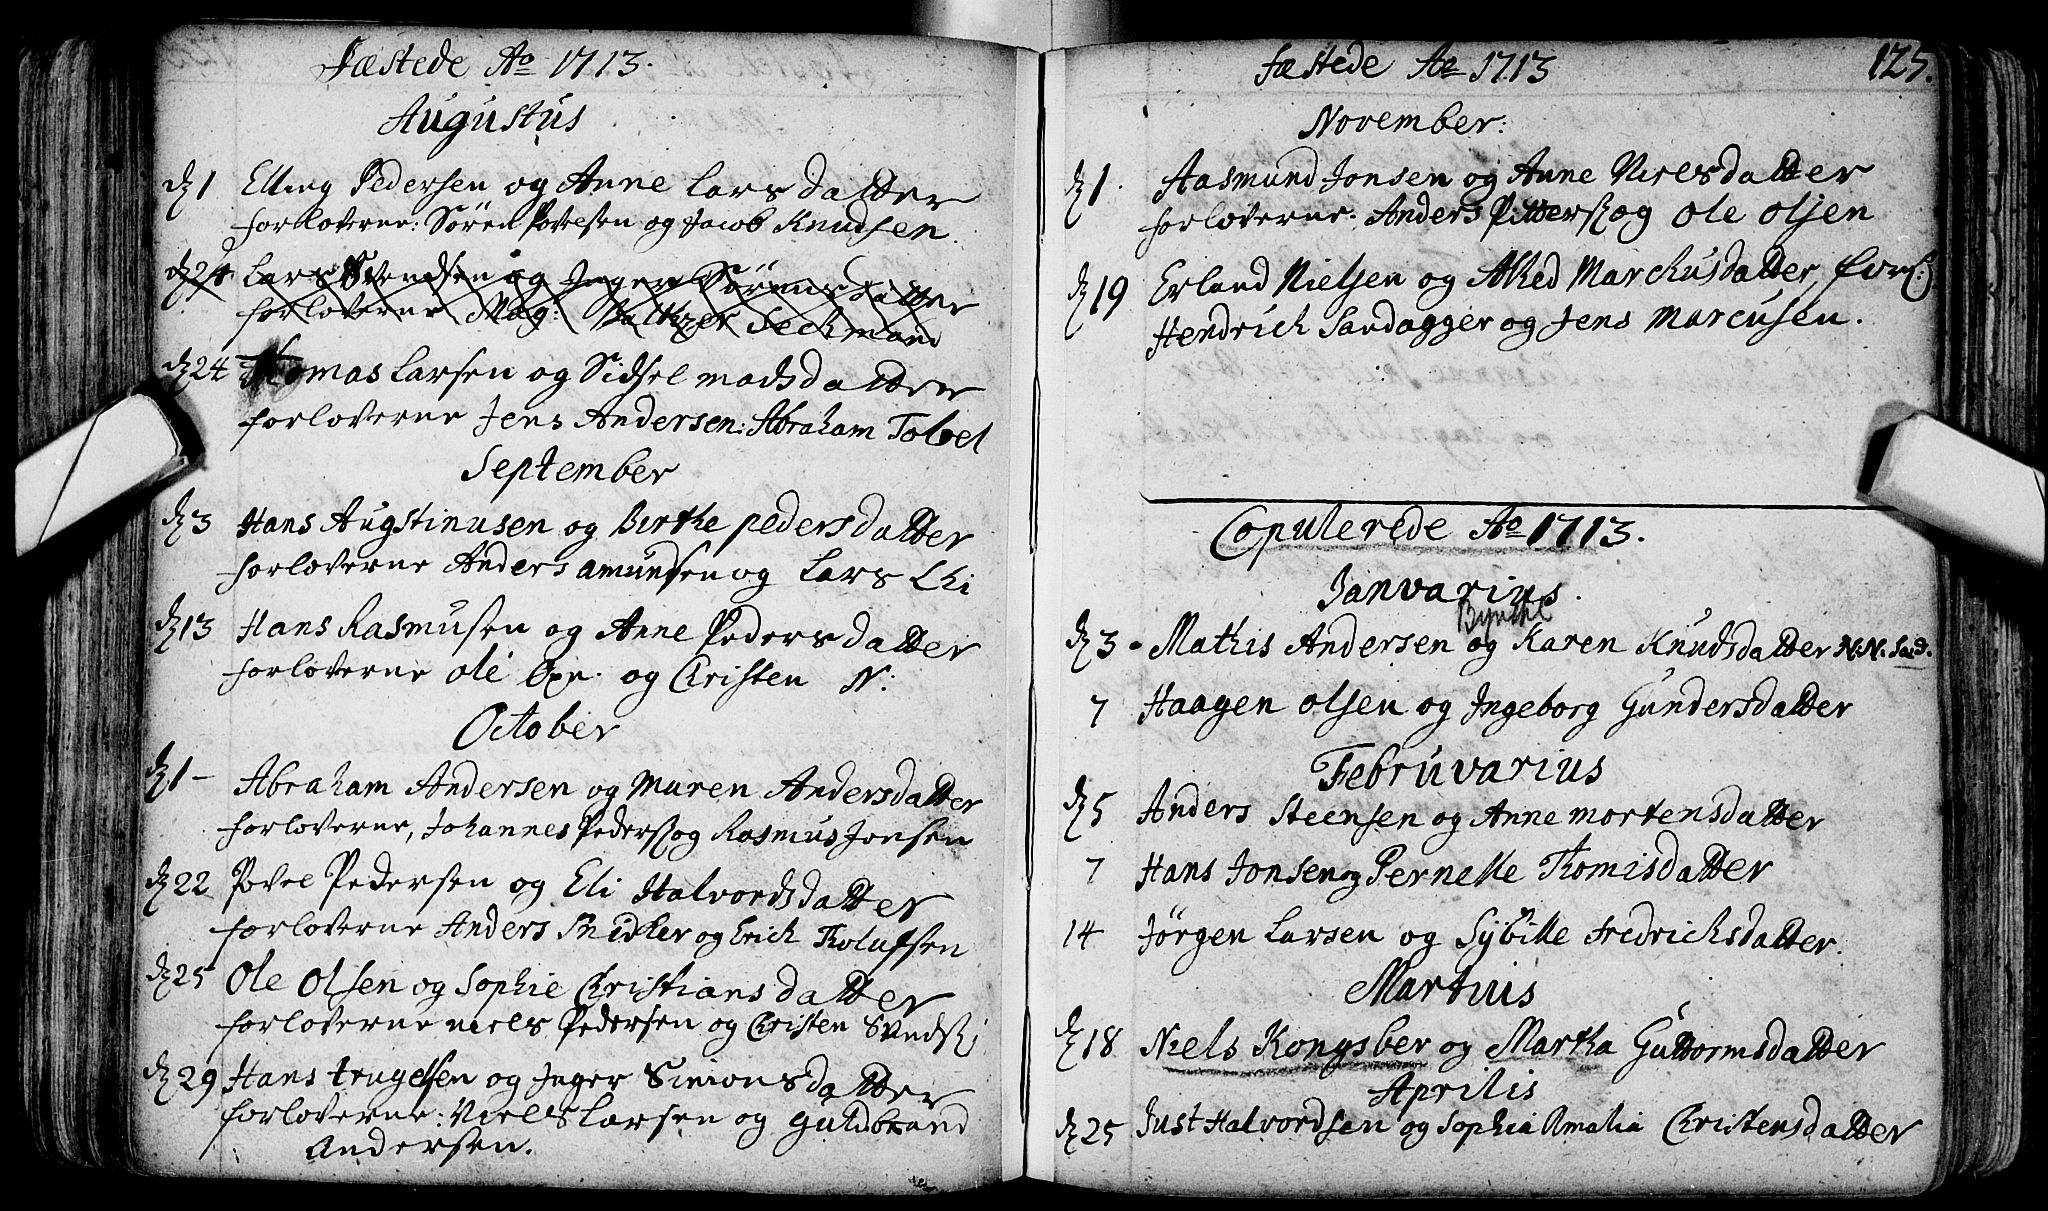 Fæstede Ao 1713.
Augustus
dz 1 Elling Pedersen og Anne Lars datter
forloverne: Sören Povelsen og Jacob Knudsen.
dz 24 Lars Svendsen og Inger Sörens datter
forloverne Mag: Baltzer Sechmand
dz 24 Thomas Larsen og Sidsel madsdatter
forloverne Jens Andersen: Abraham
September
dz 3 Hans Augstinusen og Birthe pedersdatter
forloverne Anders amundsen og Lars Chi
dz 13 Hans Rasmusen og Anne Pedersdatter
forloverne ole og Christen N:
October
dz 1 - Abraham Andersen og Maren Andersdatter
forloverne, Johannes Peders og Rasmus Jonsen
dz 22 Povel Pedersen og Eli Halvordsdatter
forloverne Anders og Erich Tholufsen
dz 25 Ole Olsen og Sophie Christians datter
forloverne niels Pedersen og Christen Svends
dz 29 Hans trugelsen og Inger Simonsdatter
forloverne: Niels Larsen og Guldbrand
Andersen.
Fæstede Ao 1713 125.
November:
dz 1. Aasmund Jonsen og Anne Nielsdatter
forloverne: Anders Pitters og Ole Olsen
dz 19 Erland Nielsen og Alhed Marchusdatter, forl:
Hendrich Sandagger og Jens Marcusen.
Copulerede Ao 1713.
Janvarius.
Bynche
dz 3 - Mathis Andersen og Karen Knudsdatter N:N. Sad.
7 Haagen Olsen og Ingeborg Gundersdatter
Februvarius
dz 5 Anders Steensen og Anne mortensdatter
7 Hans Jonsen og Pernelle Thomisdatter
14 Jörgen Larsen og Sybille Fredrichsdatter.
Martius
dz 18 Niels Kongsber og Martha Guttormsdatter
Aprilis
dz 25 Just Halvordsen og Sophia Amalia Christensdatter